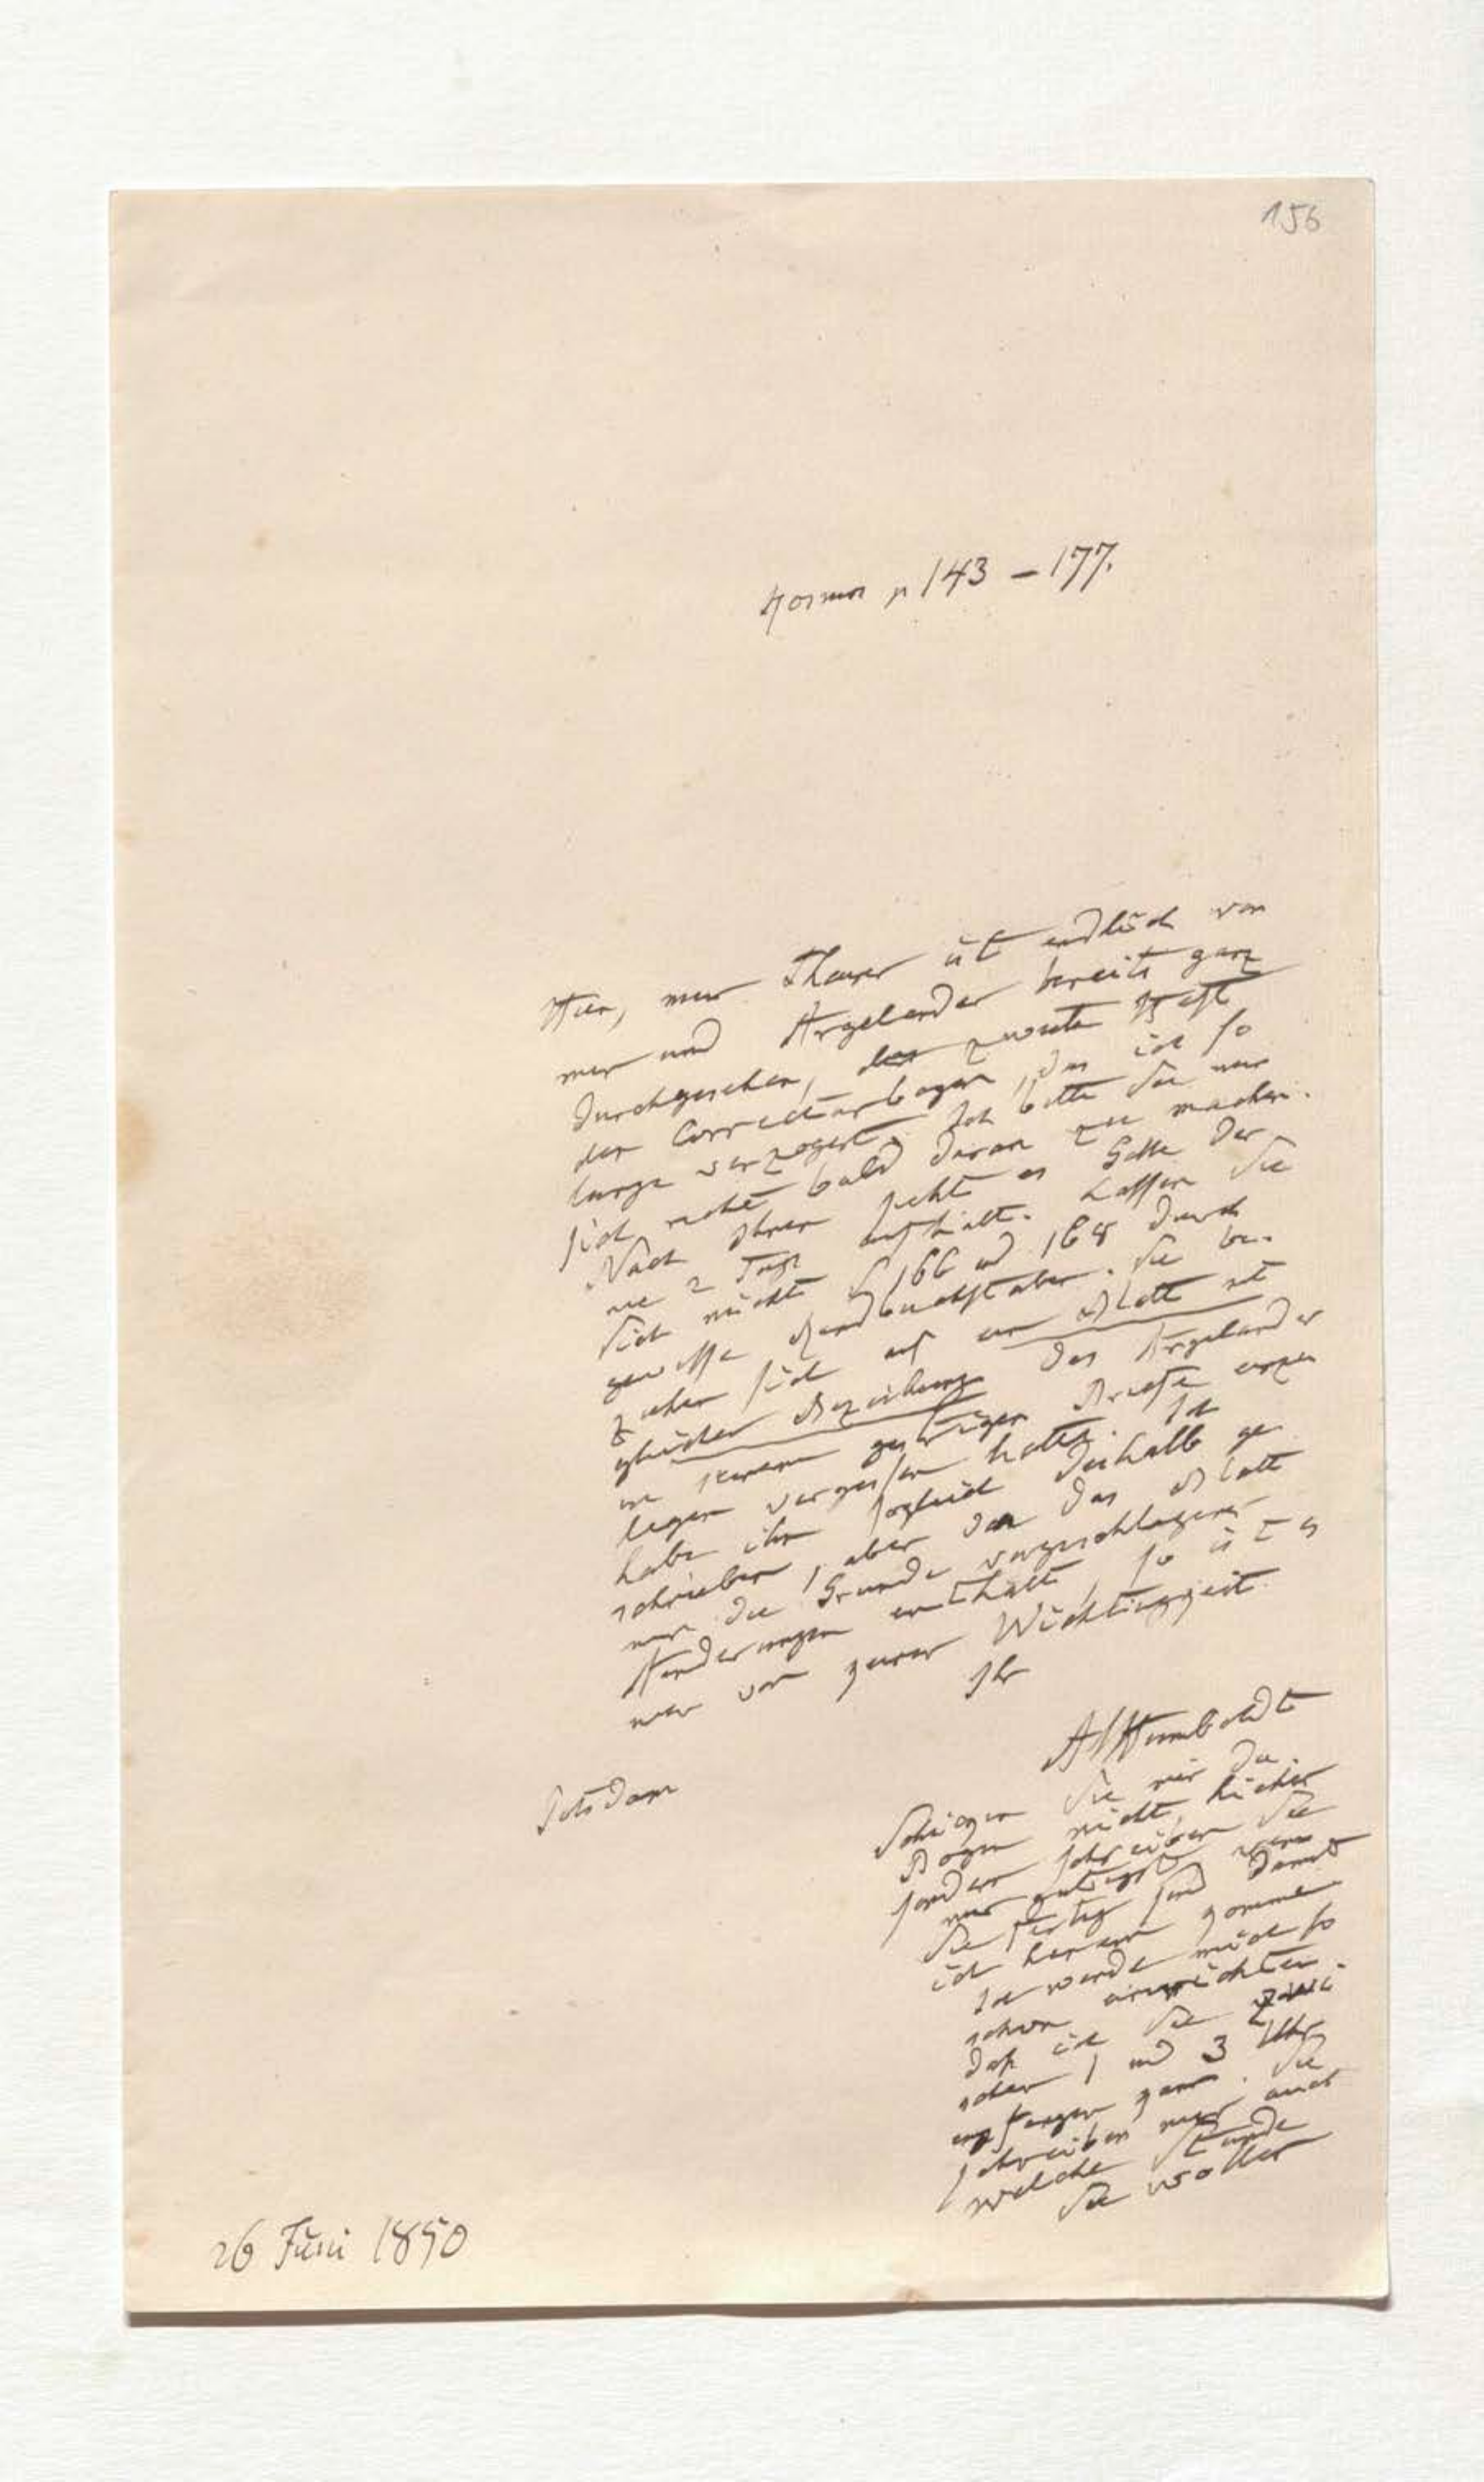 156
Kosmos p 143 – 177.
Hier, mein Theurer ist endlich von
mir und Argelander bereits ganz
durchgesehen, das zweite Heft
der Correcturbogen, das ich so
lange verzögert. Ich bitte Sie nun
sich recht bald daran zu machen.
Nach Ihnen sieht es Galle der
nie 2 Tage aufhält. Lassen Sie
Sich nicht S 166 und 168 durch
gewisse Handbuchstaben. Sie be-
ziehen sich auf ein Blatt mit
gleicher Bezeichnung das Argelander
in seinem gestrigen Briefe einzu
legen vergessen hatte. Ich
habe ihm sogleich deshalb ge
schrieben, aber da das Blatt
nur die Gründe vorgeschlagener
Aenderungen enthält, so ist es
nur von keiner Wichtigkeit
Ihr
AlHumboldt
Potsdam
Schicken Sie mir die
Bogen nicht hieher
sondern schreiben Sie
mir gütigst wenn
Sie fertig sind damit
ich herein komme
Ich werde mich so
schon einrichten
daß ich Sie zwi
schen 1 und 3 Uhr
empfangen kann. Sie
schreiben mir auch
welche Stunde
Sie wollen
26 Juni 1850